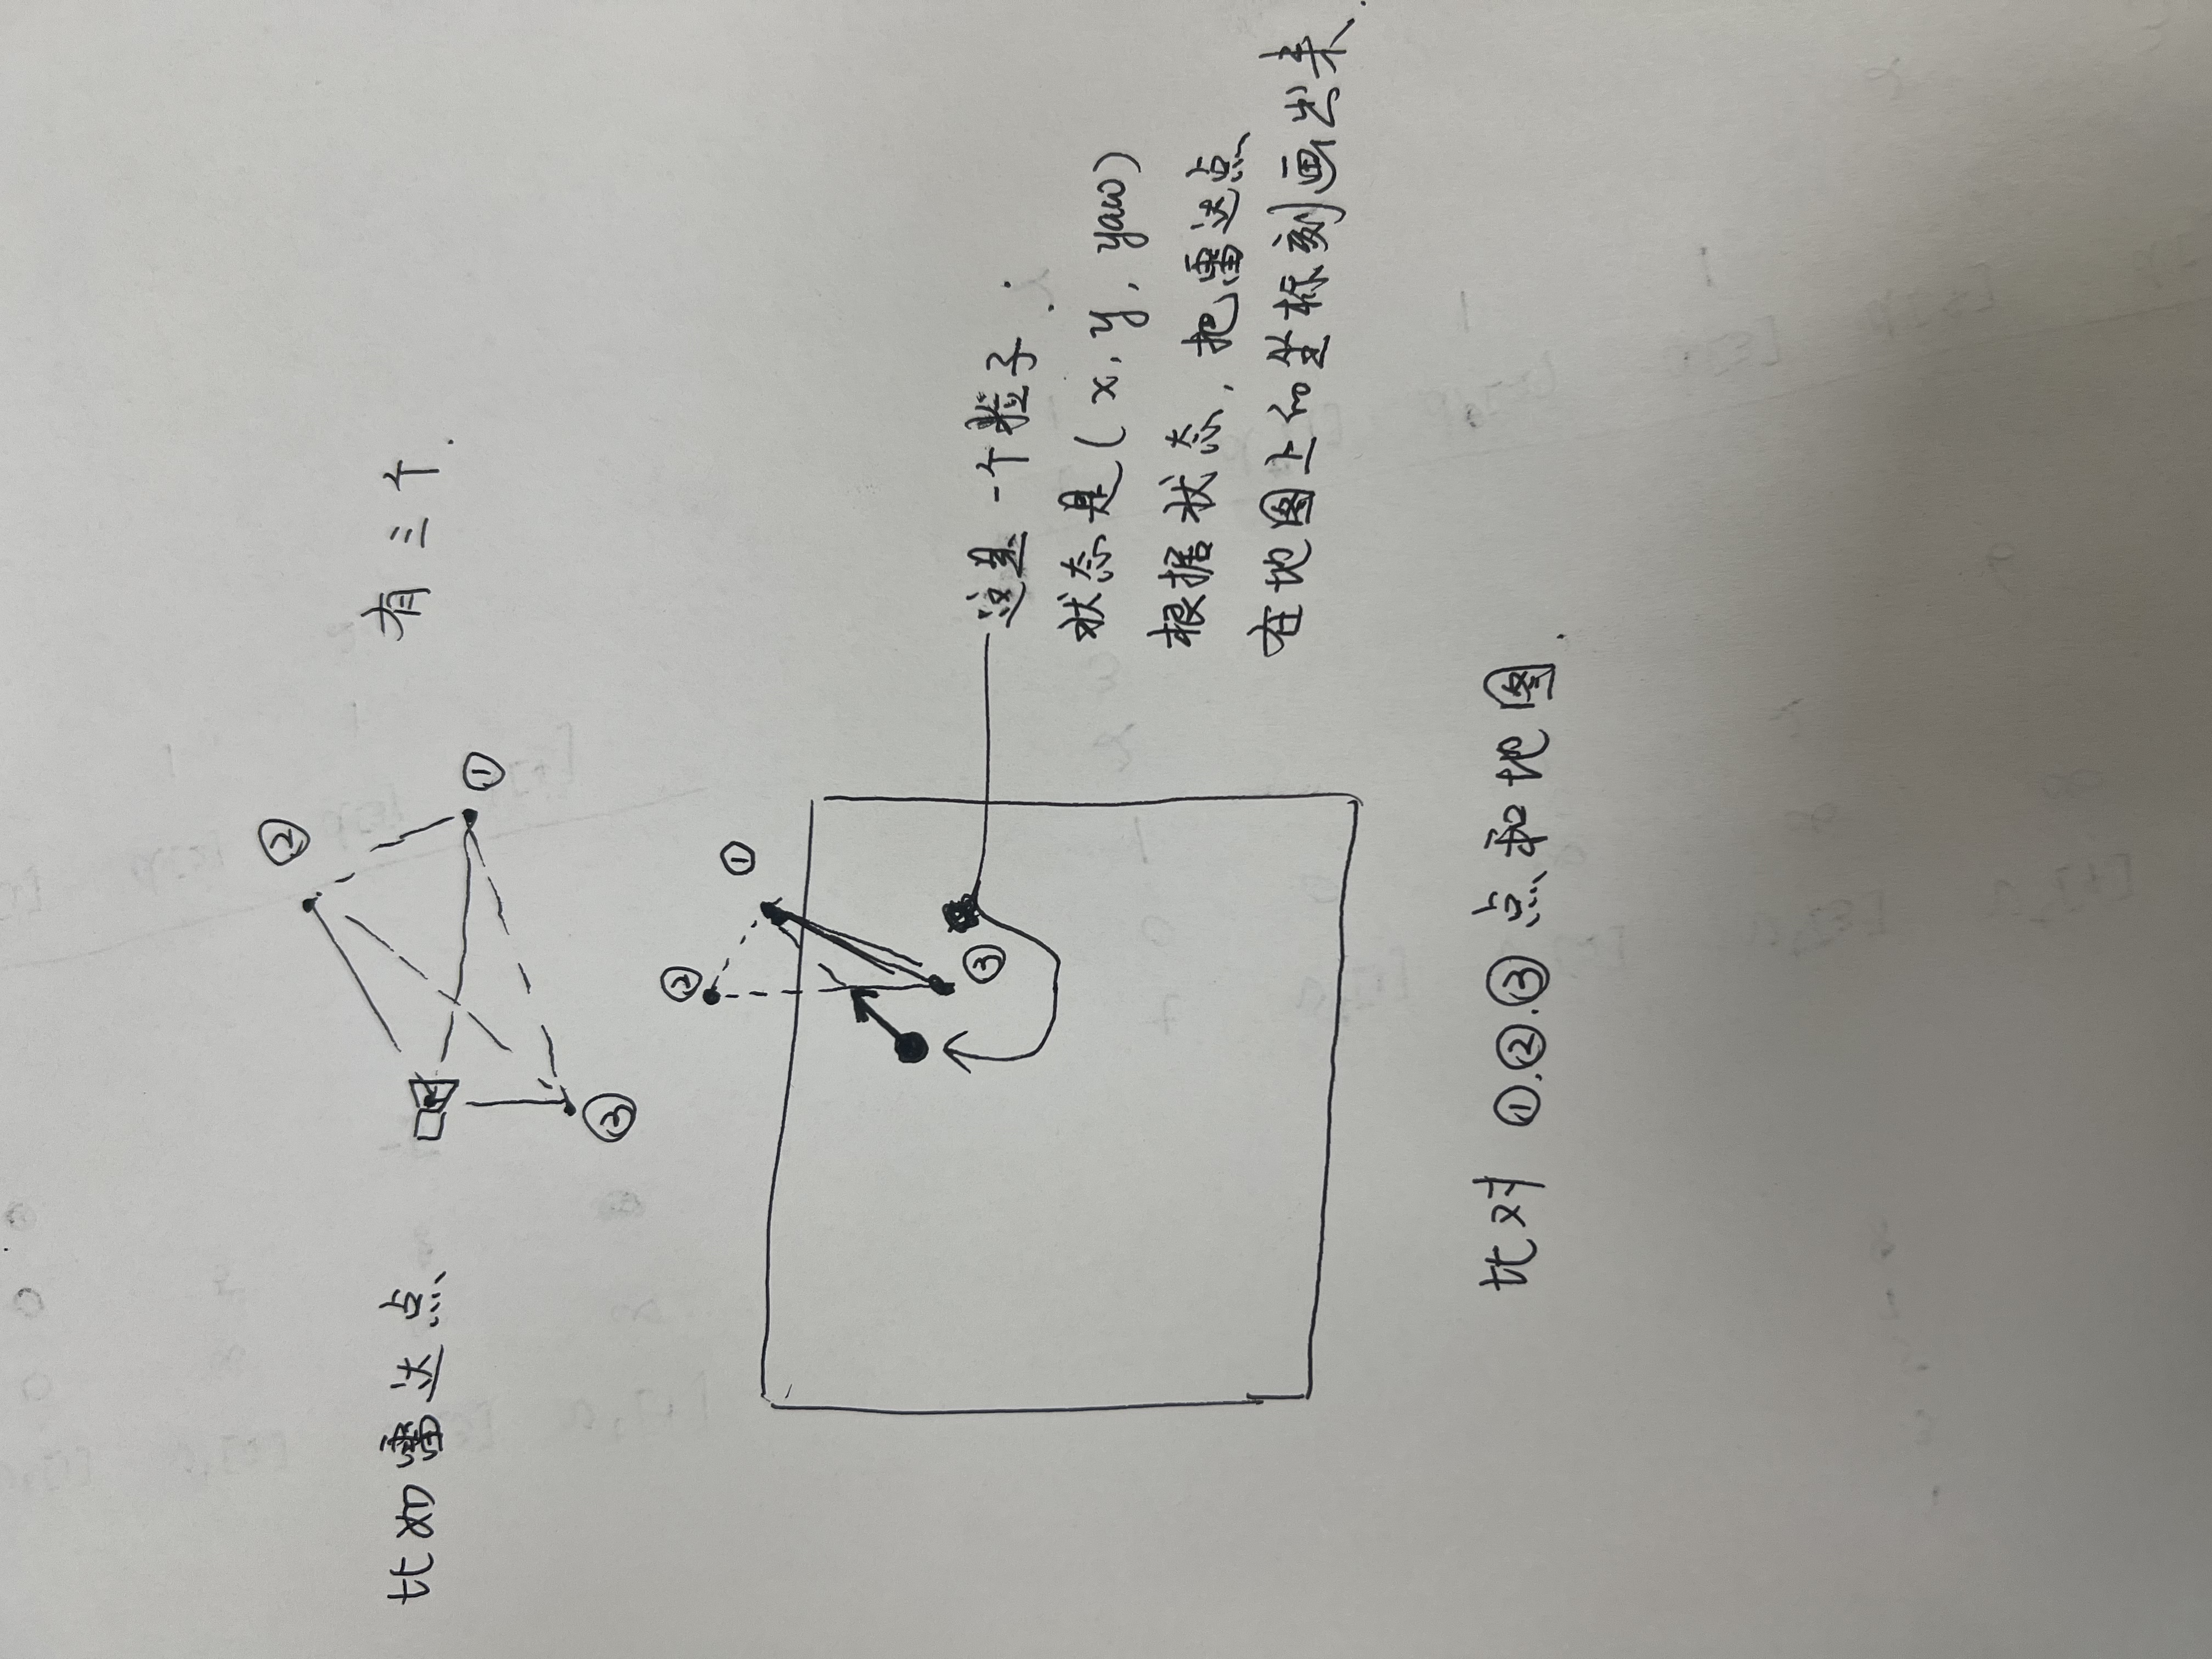 ②
比如雷达点 有三个.
①
③
②
①
③
这是一个粒子.
状态是(x, y, yaw)
根据状态, 把雷达点
在地图上的坐标刻画出来.
比对 ①.②.③ 点和地图.